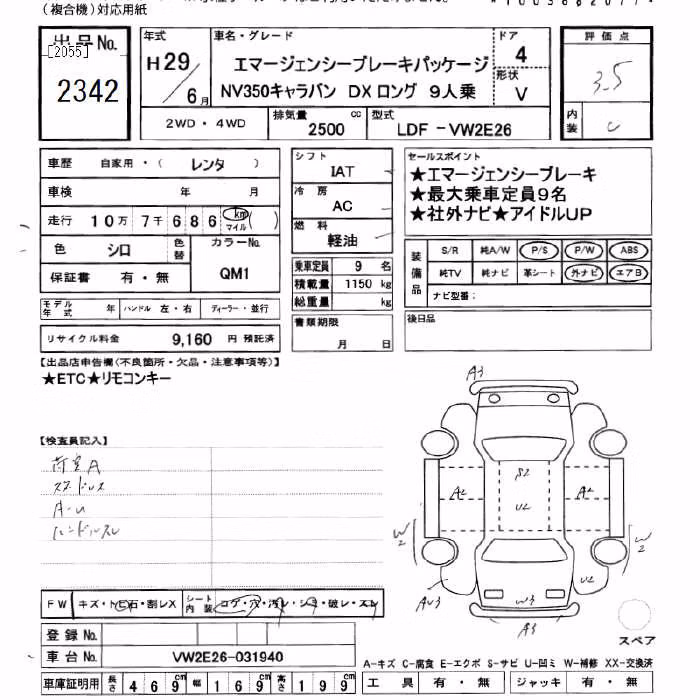 (複合機)対応用紙
出品No.
[2055]
2342
年式
H29
6月
車名・グレード
エマージェンシーブレーキパッケージ
NV350キャラバン DX ロング 9人乗
ドア
4
形状
V
評価点
3.5
内装
C
2WD・4WD
排気量
2500 cc
型式
LDF-VW2E26
車歴 自家用・( レンタ )
車検 年 月
走行 10万7千686 km マイル ( )
色 シロ
色替
カラーNo.
QM1
保証書 有・無
モデル年式 年
ハンドル 左・右
ディーラー・並行
リサイクル料金 9,160 円 預託済
シフト
IAT
冷房
AC
燃料
軽油
乗車定員 9 名
積載量 1150 kg
総重量 kg
書類期限
月 日
セールスポイント
★エマージェンシーブレーキ
★最大乗車定員9名
★社外ナビ★アイドルUP
装備品
S/R 純A/W P/S P/W ABS
純TV 純ナビ 革シート 外ナビ エアB
ナビ型番:
後日品
【出品店申告欄(不良箇所・欠品・注意事項等)】
★ETC★リモコンキー
【検査員記入】
荷室A
スタッドレス
A-U
ハンドルスレ
A3
S2
A2
U2
A2
W2
W2
AU3
W3
U2
A3
スペア
FW キズ・トビ石・割レX
シート内装 コゲ・穴・汚レ・シミ・破レ・スレ
登録No.
車台No. VW2E26-031940
車庫証明用 長さ 469cm 幅 169cm 高さ 199cm
A-キズ C-腐食 E-エクボ S-サビ U-凹ミ W-補修 XX-交換済
工具 有・無 ジャッキ 有・無